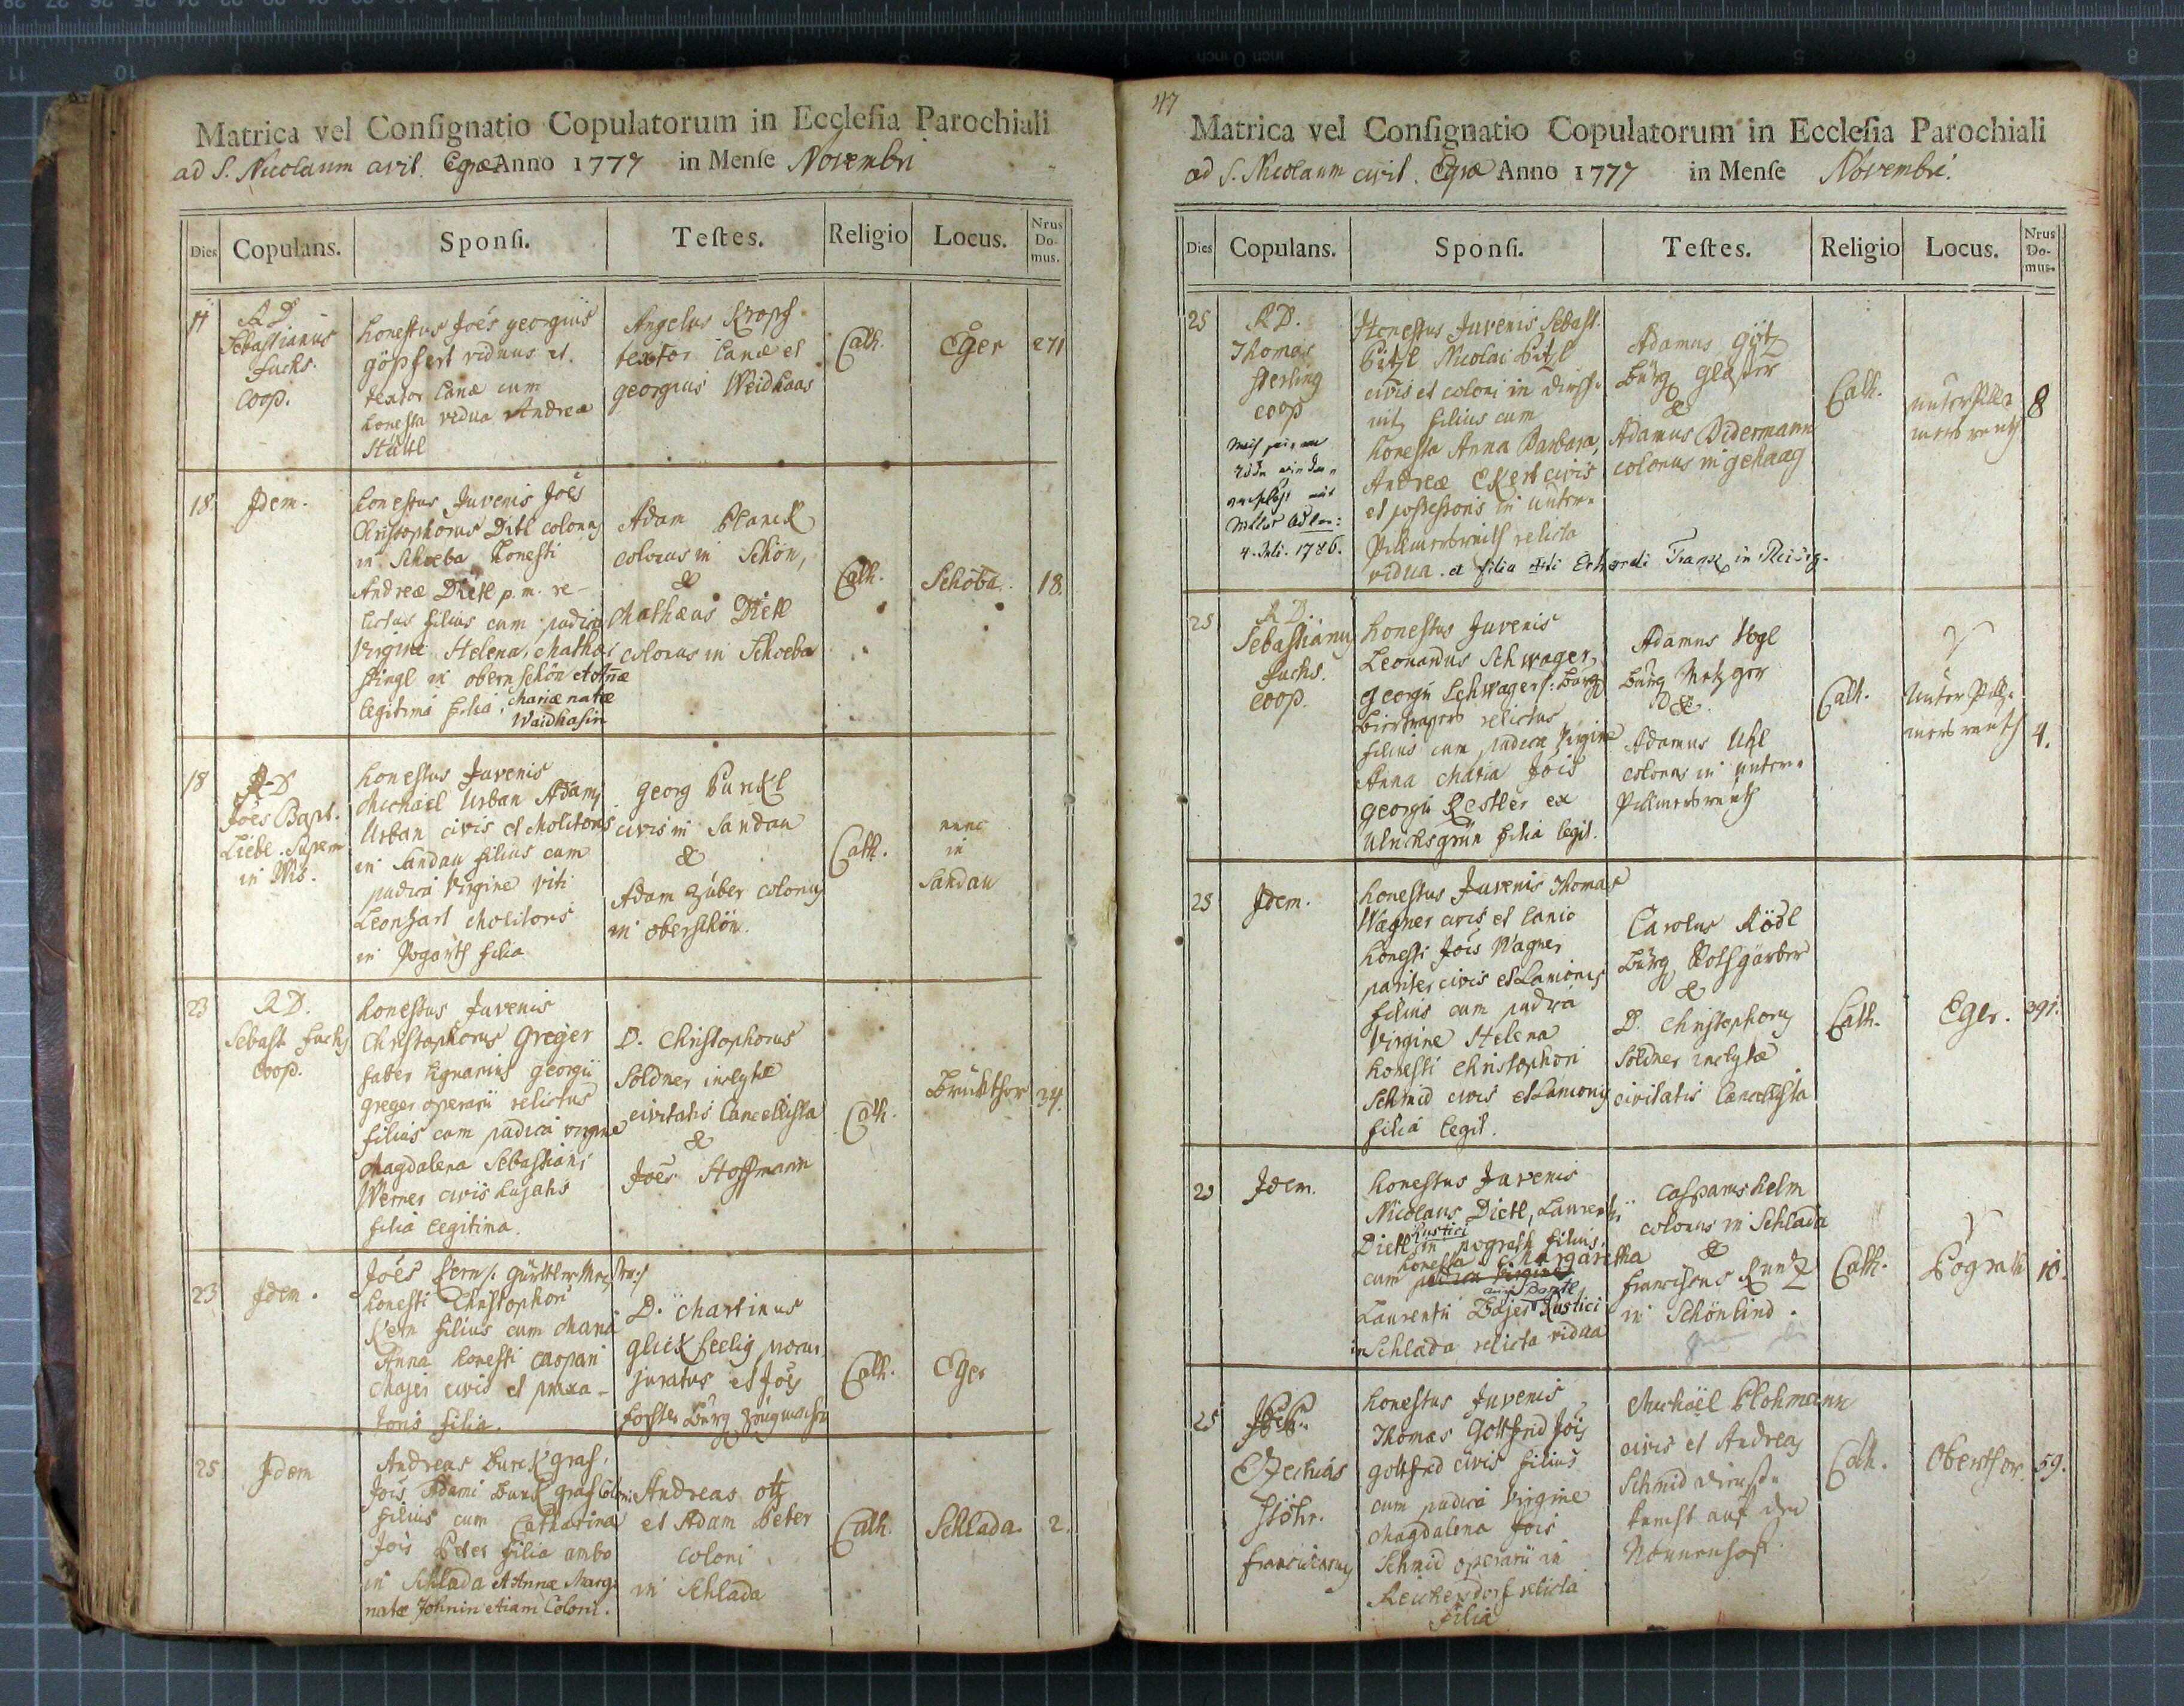 Matrica vel Consignatio Copulatorum in Ecclesia Parochiali
ad S. Nicolaum civit. Egræ Anno 1777 in Mense Novembri
Dies
Copulans.
Sponsi.
Testes.
Religio
Locus.
Nrus
Do-
mus.
11
R D
Sebastianus
Fuchs.
coop.
honestus Joês georgius
göpfert viduus et
textor lanæ cum
honesta vidua Andreæ
Angelus Kropf
textor lanæ et
georgius Weidhaas
Cath.
Eger
271
18.
Idem.
honestus Juvenis Joês
Christophorus Ditl colonus
in Schoeba honesti
Andreæ Dietl p. m. re-
lictus filius cum pudica
Virgine Helena, Mathæi
Stingl in obernschön et Annæ
legitima filia, Mariæ natæ
Waidhasin
Adam Planck
colonus in Schön,
&
Mathæus Dietl
colonus in Schoeba
Cath.
Schöba.
18.
18
R D
Joês Bapt.
Liebl. Super
in Wis.
honestus Juvenis
Michael Urban Adami
Urban civis et Molitoris
in Sandau filius cum
pudica Virgine Viti
Leonhart Molitoris
in Pograth filia
Georg Punkl
civis in Sandau
&
Adam Zuber colonus
in oberschön.
Cath.
nunc
in
Sandau
23
R D.
Sebast. Fuchs
coop.
honestus Juvenis
Christophorus Greger
faber lignarius georgii
greger operarii relictus
filius cum pudica virgine
Magdalena Sebastiani
Werner civis hujatis
filia legitima.
D. Christophorus
Söldner inclytæ
civitatis Cancellista
&
Joês Hoffmann
Cath.
Bruckthor
24.
23
Idem.
Joês Kern /: Gürtler
honesti Christophori
Kern filius cum Maria
Anna honesti Caspari
Majer civis et
filia.
D. Martinus
glückseelig
juratus et Joês
forster Bürg Zeugmacher
Cath.
Eger
25
Idem
Andreas Burckgraf,
Jois Adami Burckgraf Coloni
filius cum Catharina
Jois Peter filia ambo
in Schlada et Annæ Marg.
natæ Johnin etiam Coloni.
Andreas otz
et Adam Peter
coloni
in Schlada
Cath.
Schlada.
2.
47
Matrica vel Consignatio Copulatorum in Ecclesia Parochiali
ad S. Nicolaum civit. Egræ Anno 1777 in Mense Novembri.
Dies
Copulans.
Sponsi.
Testes.
Religio
Locus.
Nrus
Do-
mus.
25
R D.
Thomas
Sterling
coop
4. Juli. 1786.
Honestus Juvenis Sebast.
Bitzl Nicolai Bitzl
civis et coloni in
filius cum
honesta Anna Barbara,
Andreæ Ekert civis
et possessoris in unter-
Pillmersreuth relicta
vidua. et filia Erhardi Frank in Reisig.
Adamus Götz
Bürg. Glaser
&
Adamus Bidermann
colonus in gehaag
Cath.
unterpill-
mersreuth
8
25
R D.
Sebastianus
Fuchs.
coop.
honestus Juvenis
Leonardus Schwager,
georgii Schwager /: Bürg
relictus
filius cum pudica Virgine
Anna Maria Jois
georgii Kestler ex
Ulrichsgrün filia legit.
Adamus Vogl
Bürg Metzger
&.
Adamus Uhl
colonus in unter-
Pillmersreuth
Cath.
Unter Pill-
mersreuth
4.
25
Idem.
honestus Juvenis Thomas
Wagner civis et lanio
honesti Jois Wagner
pariter civis et Lanionis
filius cum pudica
Virgine Helena
honesti Christophori
Schmid civis et Lanionis
filia legit.
Carolus Rödl
Bürg Rothgärber
&
D. Christophorus
Söldner inclytæ
civitatis Cancellista
Cath.
Eger.
391.
25
Idem.
honestus Juvenis
Nicolaus Dietl, Laurentii
Dietl Rustici in Pograth filius.
cum honesta Margaretha
pudica Virgine
Laurentii Bajer Rustici
in Schlada relicta vidua
Casparus helm
colonus in Schlada
&
Franciscus Kuntz
in Schönlind.
Cath.
Pograth
10.
25
Ezechias
Stöhr.
Franciscanus
honestus Juvenis
Thomas Gottfrid Jois
gottfrid civis filius
cum pudica Virgine
Magdalena Jois
Schmid operarii in
Reichersdorf relicta
filia
Michaël Plohmann
civis et Andreas
Schmid dienst-
knecht auf der
Nonnenhof.
Cath.
Oberthor.
59.